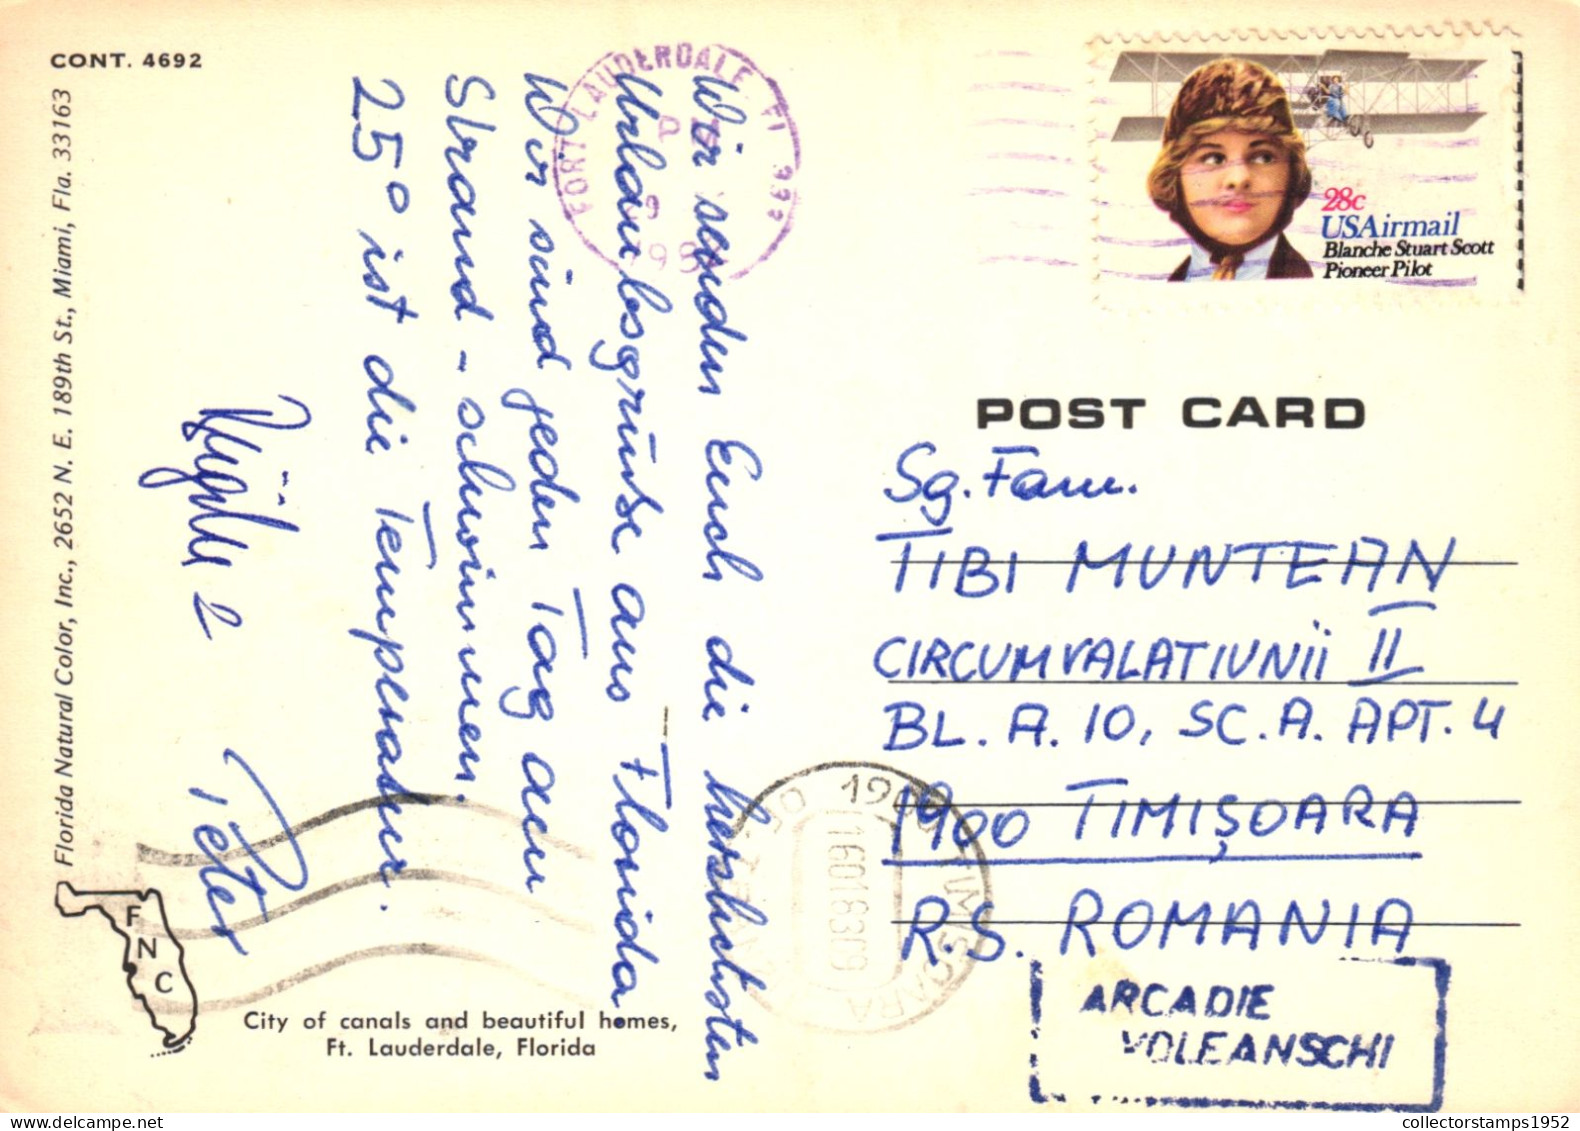 CONT. 4692
Florida Natural Color, Inc., 2652 N. E. 189th St., Miami, Fla. 33163
Wir senden Euch die herzlichsten
Urlaubsgrüße aus Florida.
Wir sind jeden Tag am
Strand - schwimmen.
25° ist die Temperatur.
Peter
F
N
C
City of canals and beautiful homes,
Ft. Lauderdale, Florida
FORT LAUDERDALE FL 333
28c
USAirmail
Blanche Stuart Scott
Pioneer Pilot
POST CARD
Sg. Fam.
TIBI MUNTEAN
CIRCUMVALATIUNII II
BL. A. 10, SC. A. APT. 4
1900 TIMIȘOARA
R.S. ROMANIA
1900 TIMISOARA
ARCADIE
VOLEANSCHI
collectorstamps1952